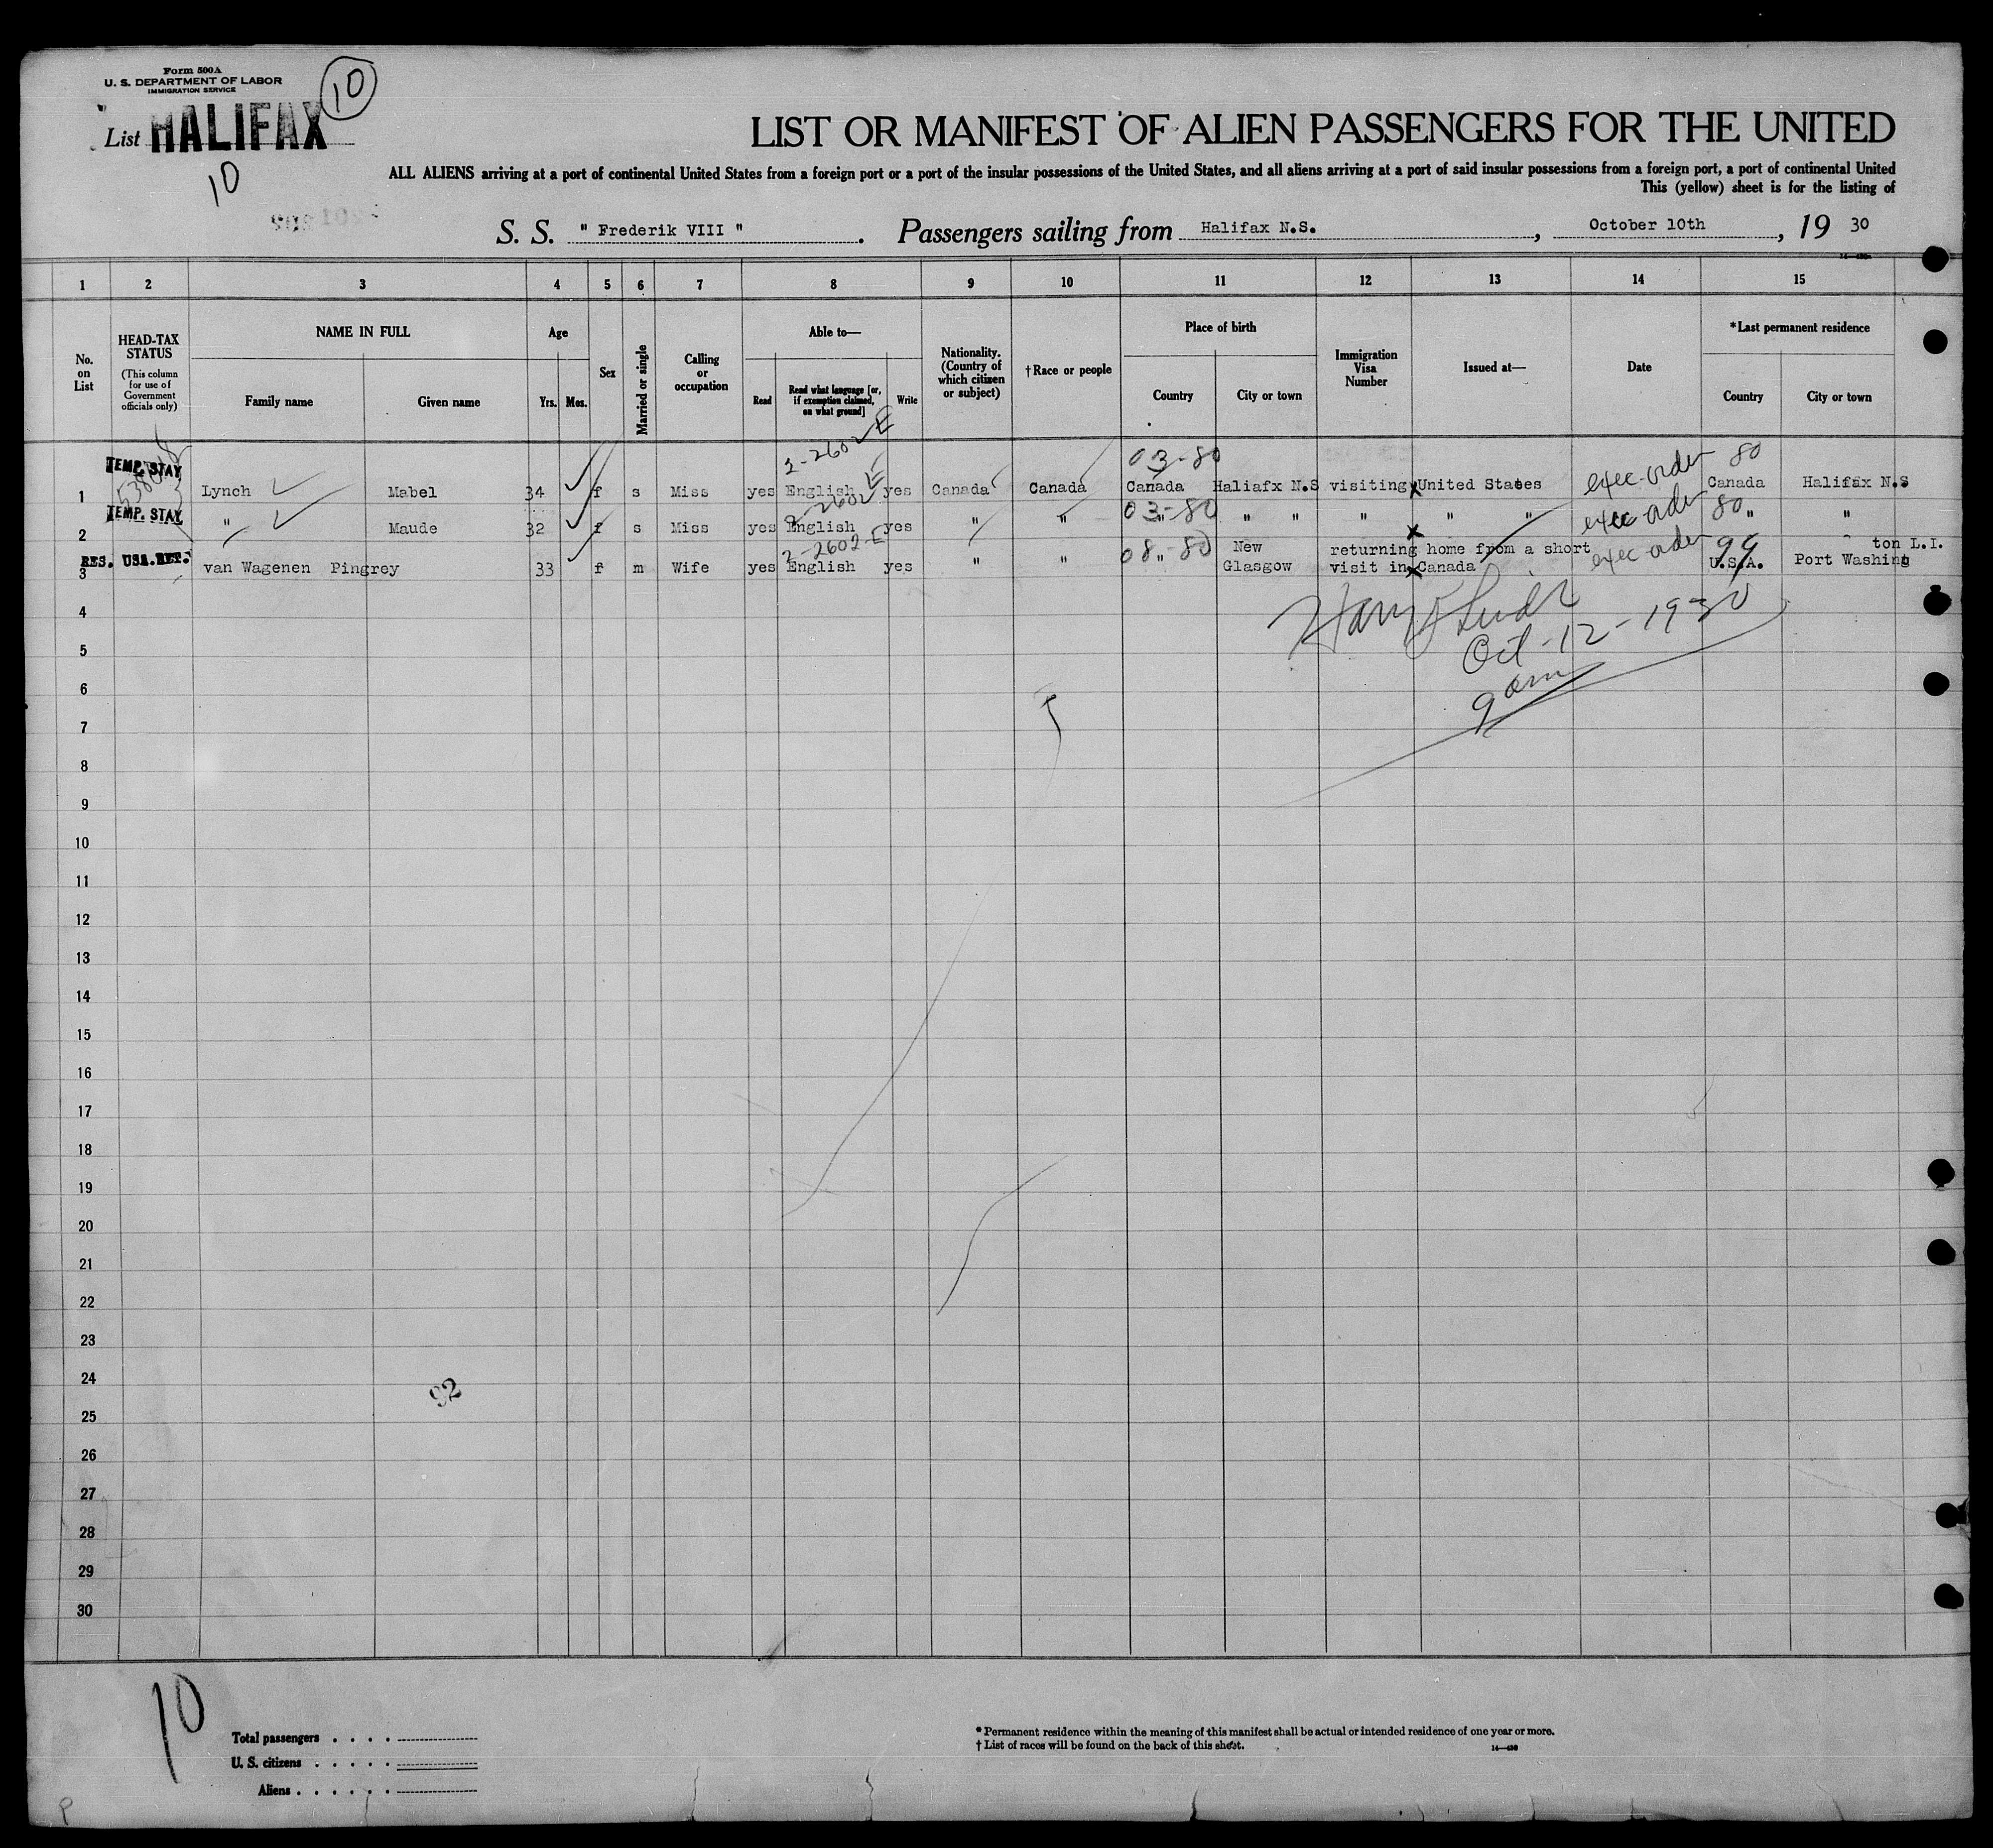 Form 500A
U. S. DEPARTMENT OF LABOR
IMMIGRATION SERVICE
10
List HALIFAX
10
LIST OR MANIFEST OF ALIEN PASSENGERS FOR THE UNITED
ALL ALIENS arriving at a port of continental United States from a foreign port or a port of the insular possessions of the United States, and all aliens arriving at a port of said insular possessions from a foreign port, a port of continental United
This (yellow) sheet is for the listing of
S. S. " Frederik VIII " . Passengers sailing from Halifax N.S. , October 10th , 19 30
1 2 3 4 5 6 7 8 9 10 11 12 13 14 15
No. on List
HEAD-TAX STATUS
(This column for use of Government officials only)
NAME IN FULL
Family name Given name
Age
Yrs. Mos.
Sex
Married or single
Calling or occupation
Able to—
Read Read what language [or, if exemption claimed, on what ground] Write
Nationality. (Country of which citizen or subject)
†Race or people
Place of birth
Country City or town
Immigration Visa Number
Issued at—
Date
*Last permanent residence
Country City or town
2-2602 E 03-80 80
TEMP. STAY
1 Lynch Mabel 34 f s Miss yes English yes Canada Canada Canada Haliafx N.S visiting x United States exec-order Canada Halifax N.S
2-2602 E 03-80 80
TEMP. STAY
2 " Maude 32 f s Miss yes English yes " " " " " " " " exec-order " "
2-2602-E 08-80 99
RES. USA. RET.
3 van Wagenen Pingrey 33 f m Wife yes English yes " " " New Glasgow returning home from a short visit in x Canada exec order U.S.A. Port Washington L.I.
4
Oct-12-1930
5
9 am
6
7
8
9
10
11
12
13
14
15
16
17
18
19
20
21
22
23
24
92
25
26
27
28
29
30
10
Total passengers . . . .
U. S. citizens . . . . .
Aliens . . . . . .
* Permanent residence within the meaning of this manifest shall be actual or intended residence of one year or more.
† List of races will be found on the back of this sheet.